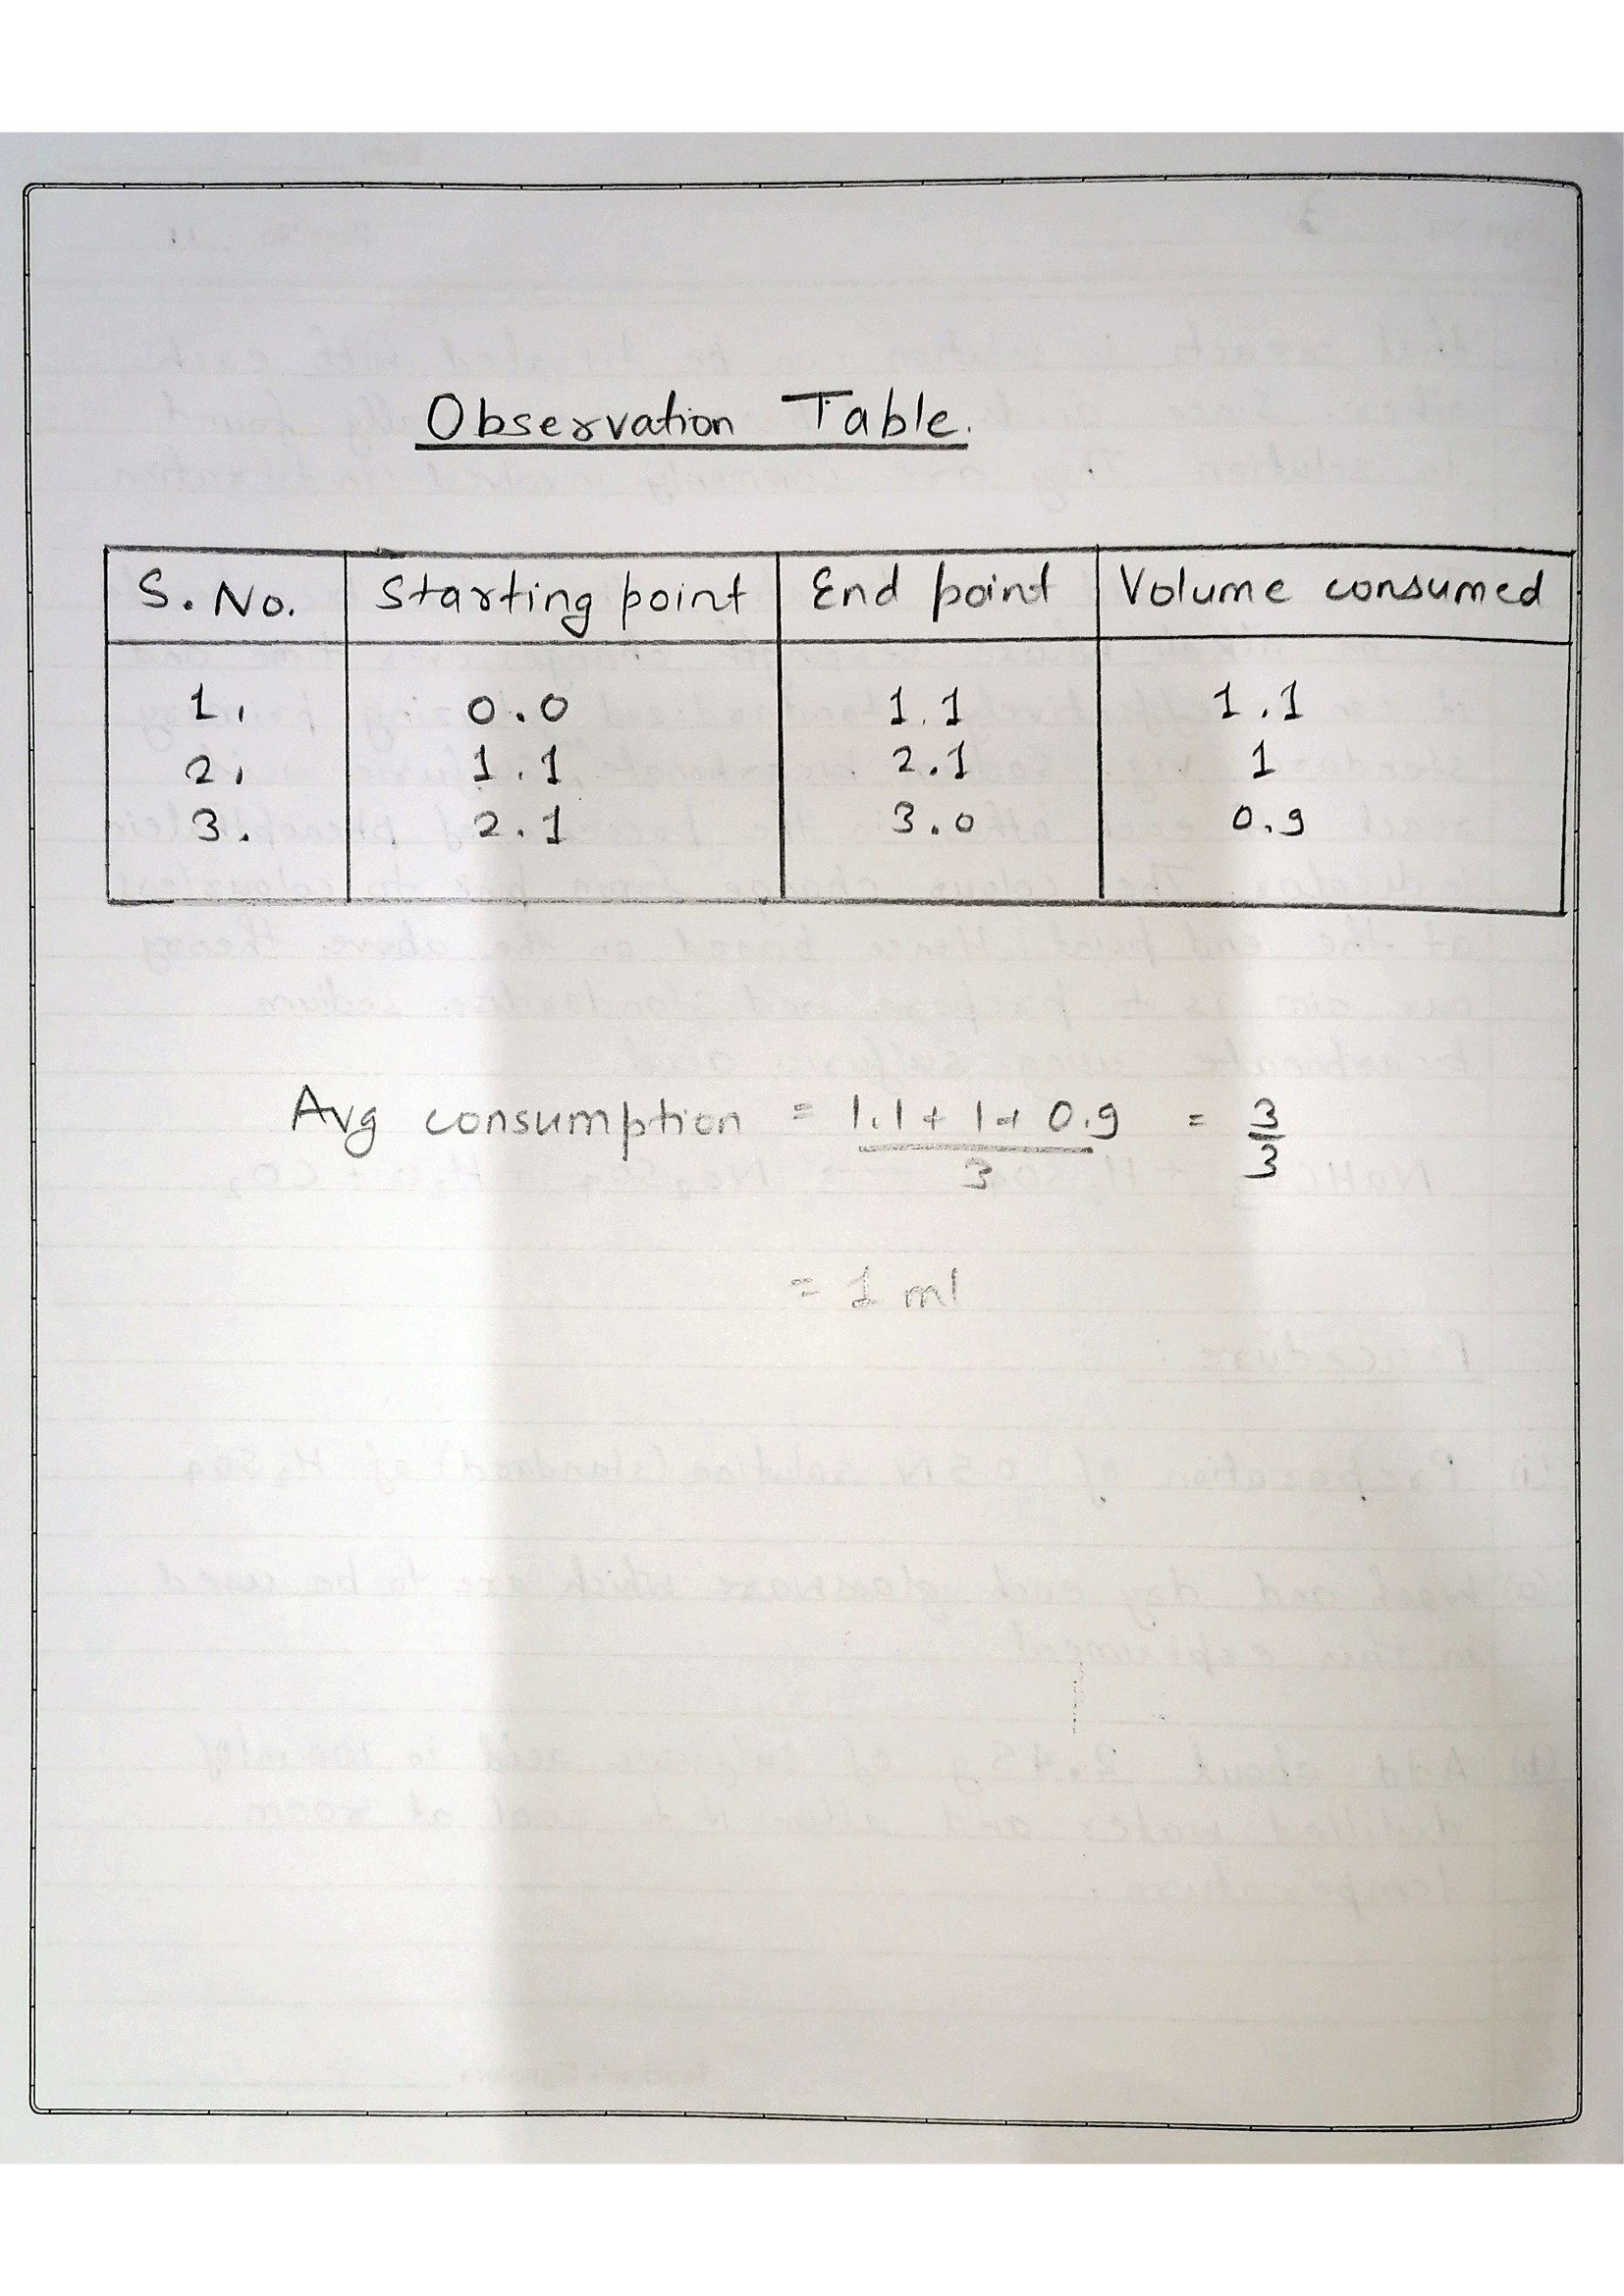 Observation Table.
S. No. Starting point End point Volume consumed
1. 0.0 1.1 1.1
2. 1.1 2.1 1
3. 2.1 3.0 0.9
Avg consumption = 1.1 + 1 + 0.9 = 3
3 3
= 1 ml